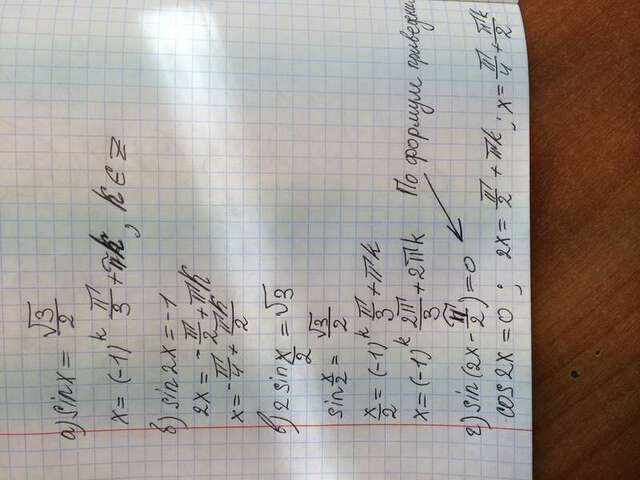 а) sin x = √3/2
x = (-1)^k π/3 + πk, k ∈ Z
б) sin 2x = -1
2x = -π/2 + πk
x = -π/4 + πk/2
в) 2 sin x/2 = √3
sin x/2 = √3/2
x/2 = (-1)^k π/3 + πk
x = (-1)^k 2π/3 + 2πk
По формулам приведения
г) sin(2x - π/2) = 0
cos 2x = 0; 2x = π/2 + πk; x = π/4 + πk/2